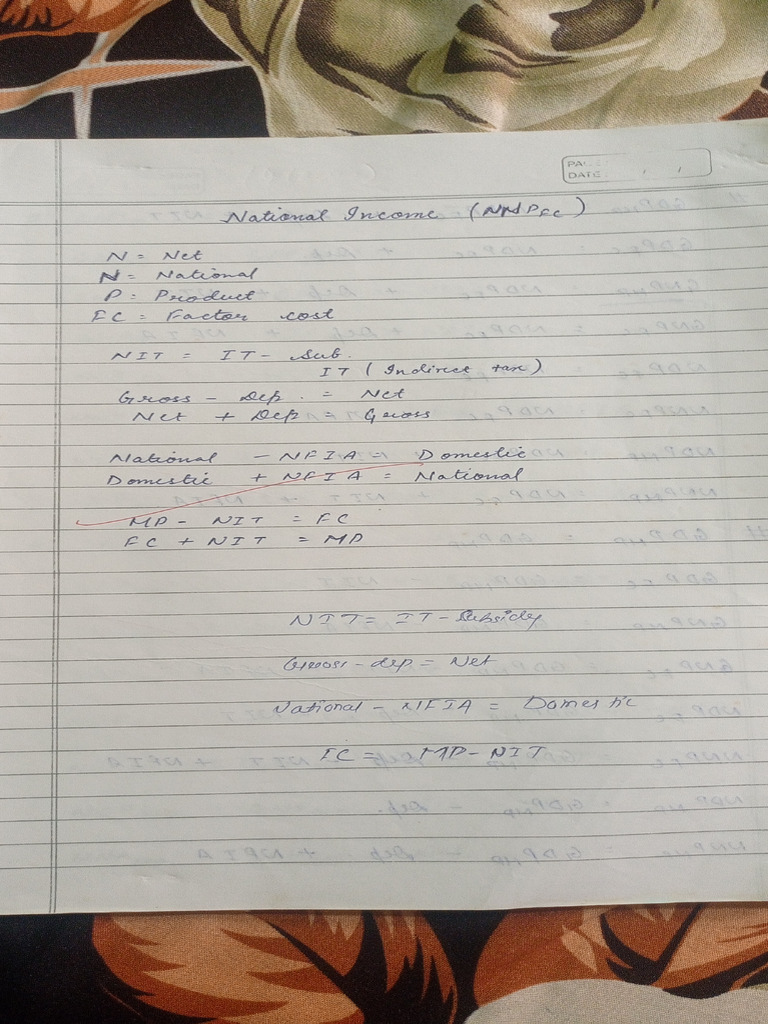 PAGE:
DATE: / /
National Income (NNPFC)
N = Net
N = National
P = Product
FC = Factor cost
NIT = IT - Sub.
IT (Indirect tax)
Gross - Dep. = Net
Net + Dep = Gross
National - NFIA = Domestic
Domestic + NFIA = National
MP - NIT = FC
FC + NIT = MP
NIT = IT - Subsidy
Gross - dep = Net
National - NFIA = Domestic
FC = MP - NIT